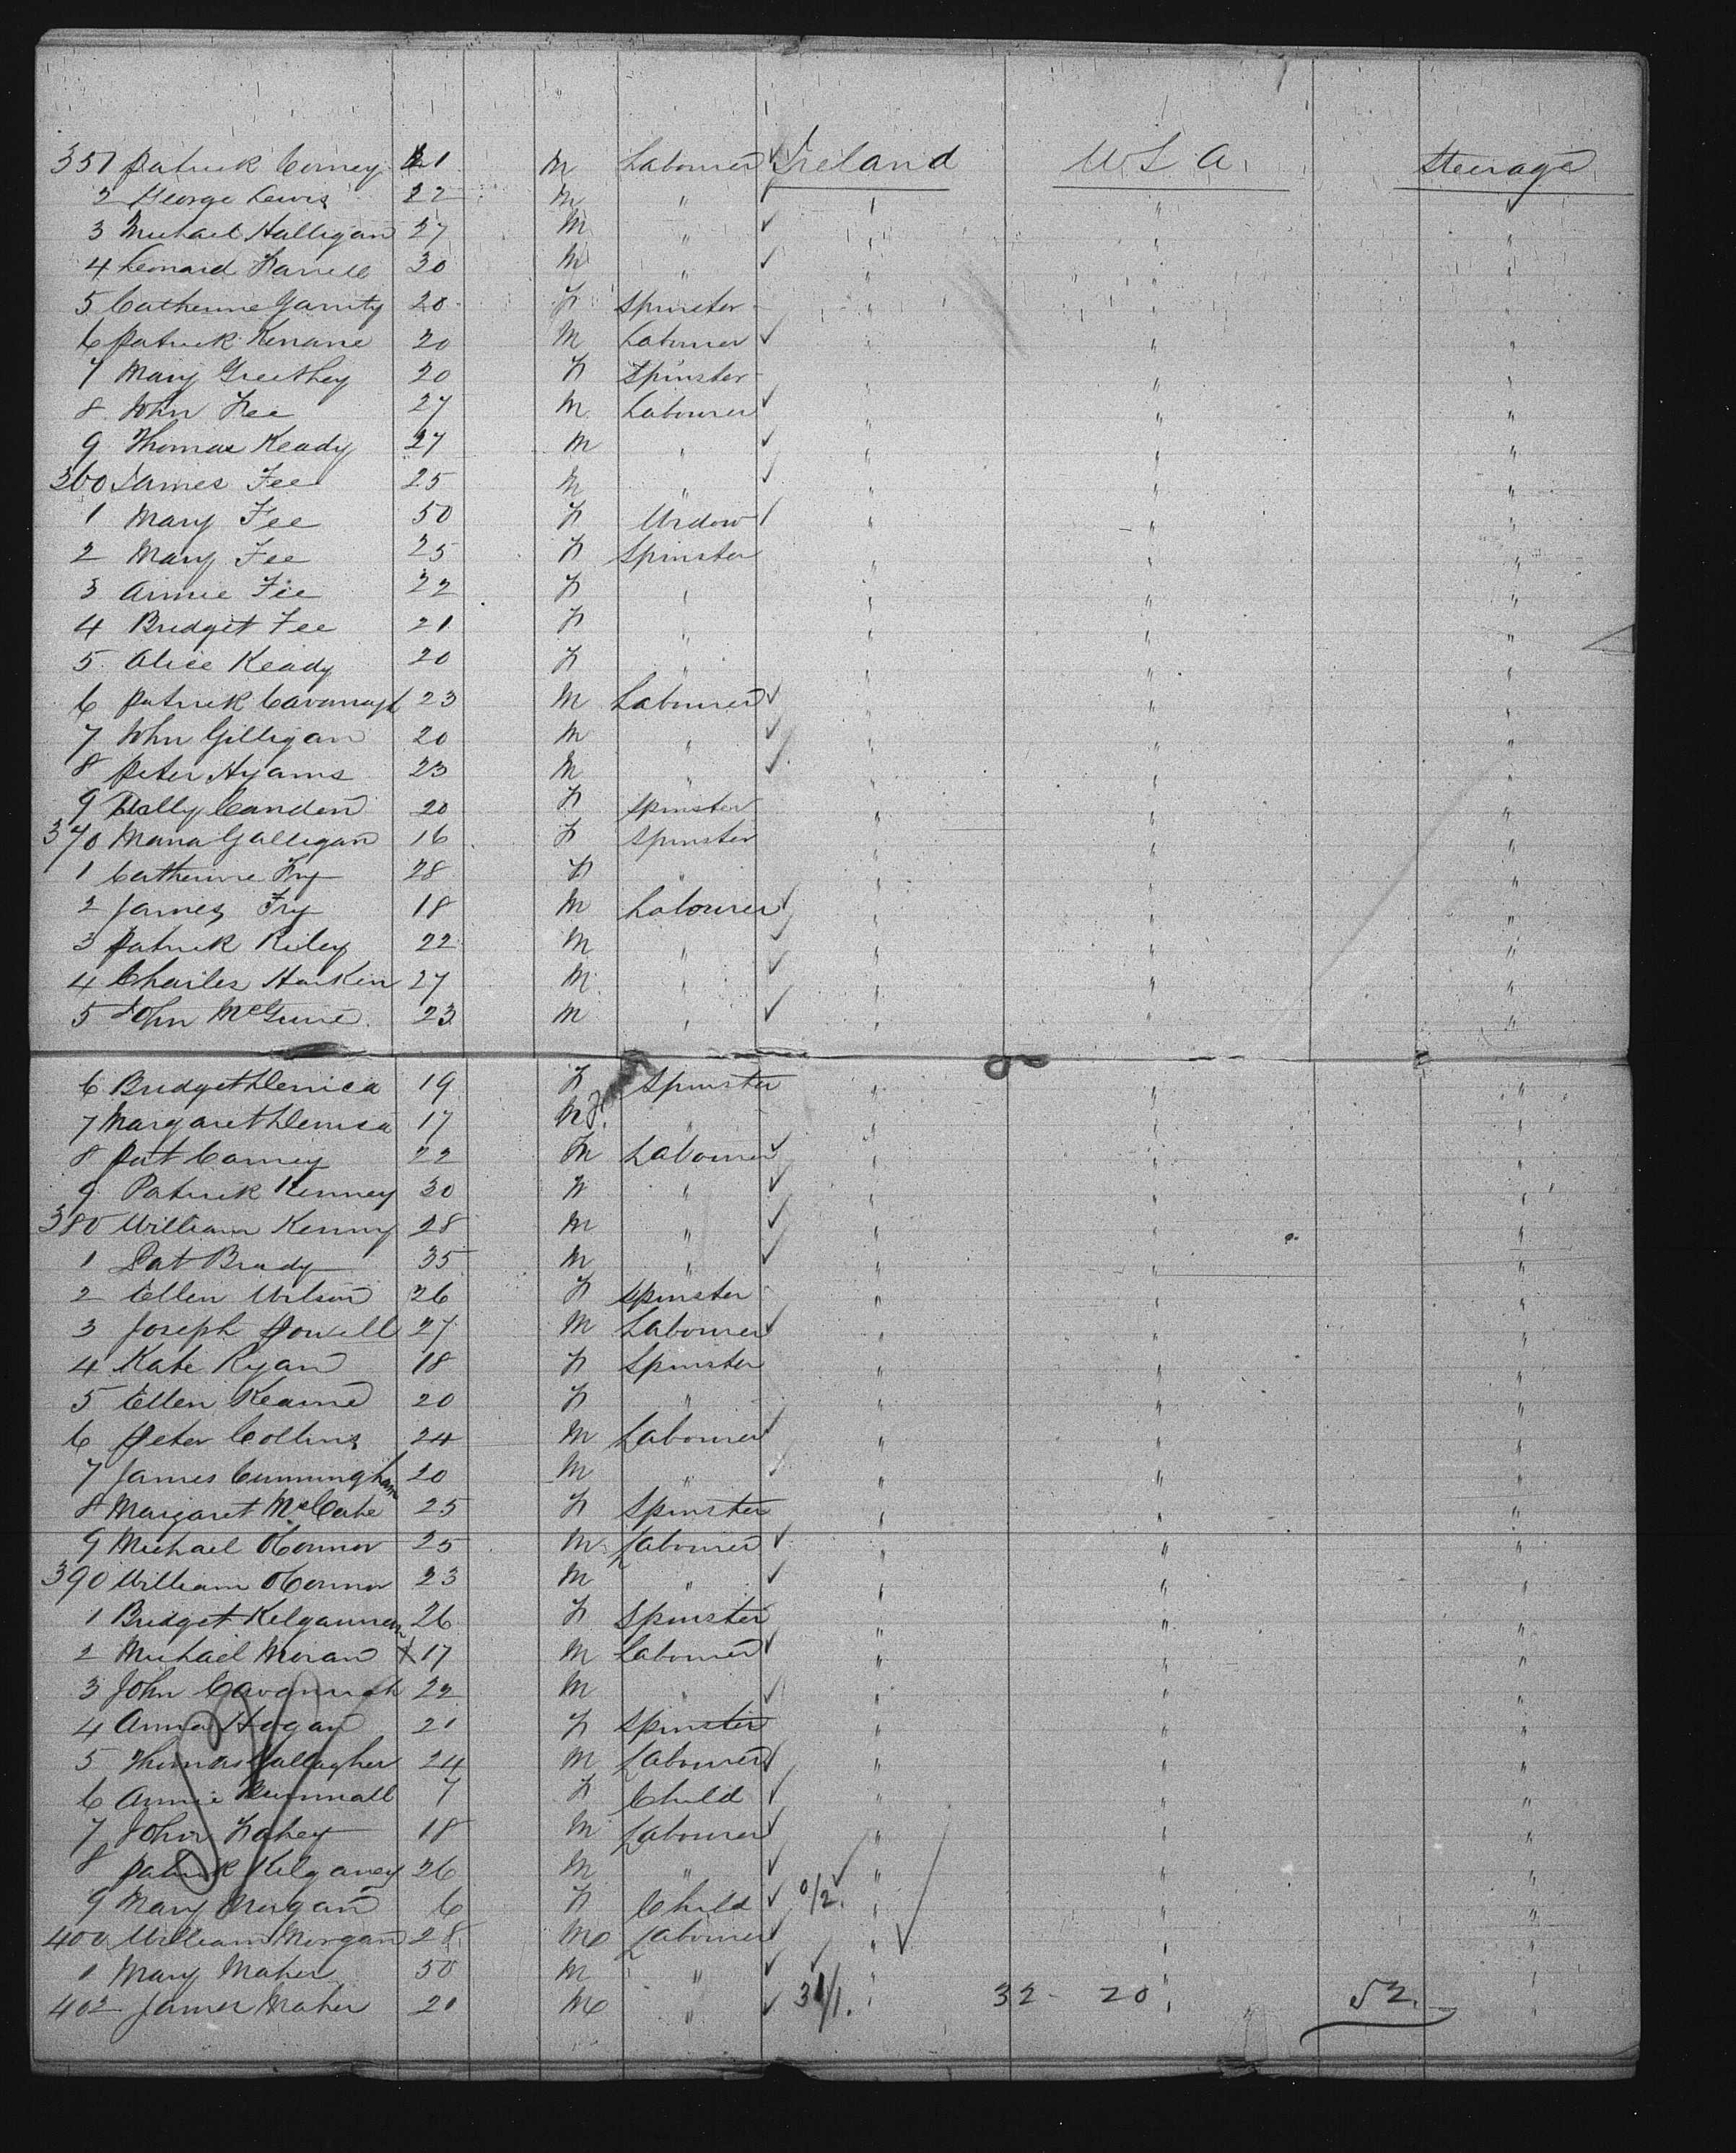 351 Patrick Corney 21 M Labourer ✓ Ireland U S A. Steerage
2 George Lewis 22 M " " " "
3 Michael Halligan 27 M " ✓ " " "
4 Leonard Farrell 30 M " ✓ " " "
5 Catherine Garrity 20 F Spinster - " " "
6 Patrick Kenane 20 M Labourer ✓ " " "
7 Mary 20 F Spinster - " " "
8 John Fee 27 M Labourer ✓ " " "
9 Thomas Keady 27 M " ✓ " " "
360 James Fee 25 M " ✓ " " "
1 Mary Fee 50 F Widow " " "
2 Mary Fee 25 F Spinster " " "
3 Annie Fee 22 F " " " "
4 Bridget Fee 21 F " " " "
5 Alice Keady 20 F " " " "
6 Patrick Cavanagh 23 M Labourer ✓ " " "
7 John Gilligan 20 M " ✓ " " "
8 Peter Hyams 23 M " ✓ " " "
9 Conden 20 F Spinster " " "
370 Maria Galligan 16 F Spinster " " "
1 Catherine Fry 28 F " " " "
2 James Fry 18 M Labourer ✓ " " "
3 Patrick Riley 22 M " ✓ " " "
4 Charles Harken 27 M " ✓ " " "
5 John McGuire 23 M " ✓ " " "
6 Bridget 19 F Spinster " " "
7 Margaret 17 F " " " "
8 Pat Carney 22 M Labourer ✓ " " "
9 Patrick Kenney 30 M " ✓ " " "
380 William Kenny 28 M " ✓ " " "
1 Pat Brady 35 M " ✓ " " "
2 Ellen Wilson 26 F Spinster - " " "
3 Joseph Powell 27 M Labourer ✓ " " "
4 Kate Ryan 18 F Spinster " " "
5 Ellen Keane 20 F " " " "
6 Peter Collins 24 M Labourer ✓ " " "
7 James Cunningham 20 M " ✓ " " "
8 Margaret McCabe 25 F Spinster " " "
9 Michael OConnor 25 M Labourer ✓ " " "
390 William OConnor 23 M " ✓ " " "
1 Bridget Kilgannan 26 F Spinster " " "
2 Michael Moran X 17 M Labourer ✓ " " "
3 John Cavannagh 22 M " ✓ " " "
4 Anna Hogan 21 F Spinster " " "
5 Thomas Gallagher 24 M Labourer ✓ " " "
6 Annie 7 F Child ✓ " " "
7 John Fahey 18 M Labourer ✓ " " "
8 Patrick Kilganey 26 M " ✓ " " "
9 Mary Morgan 6 F Child ✓ 0/2. " " "
400 William Morgan 28 M Labourer ✓ " " "
1 Mary Maher 50 M " ✓ " " "
402 James Maher 20 M " ✓ 31/1. " 32 - 20 " 52. "